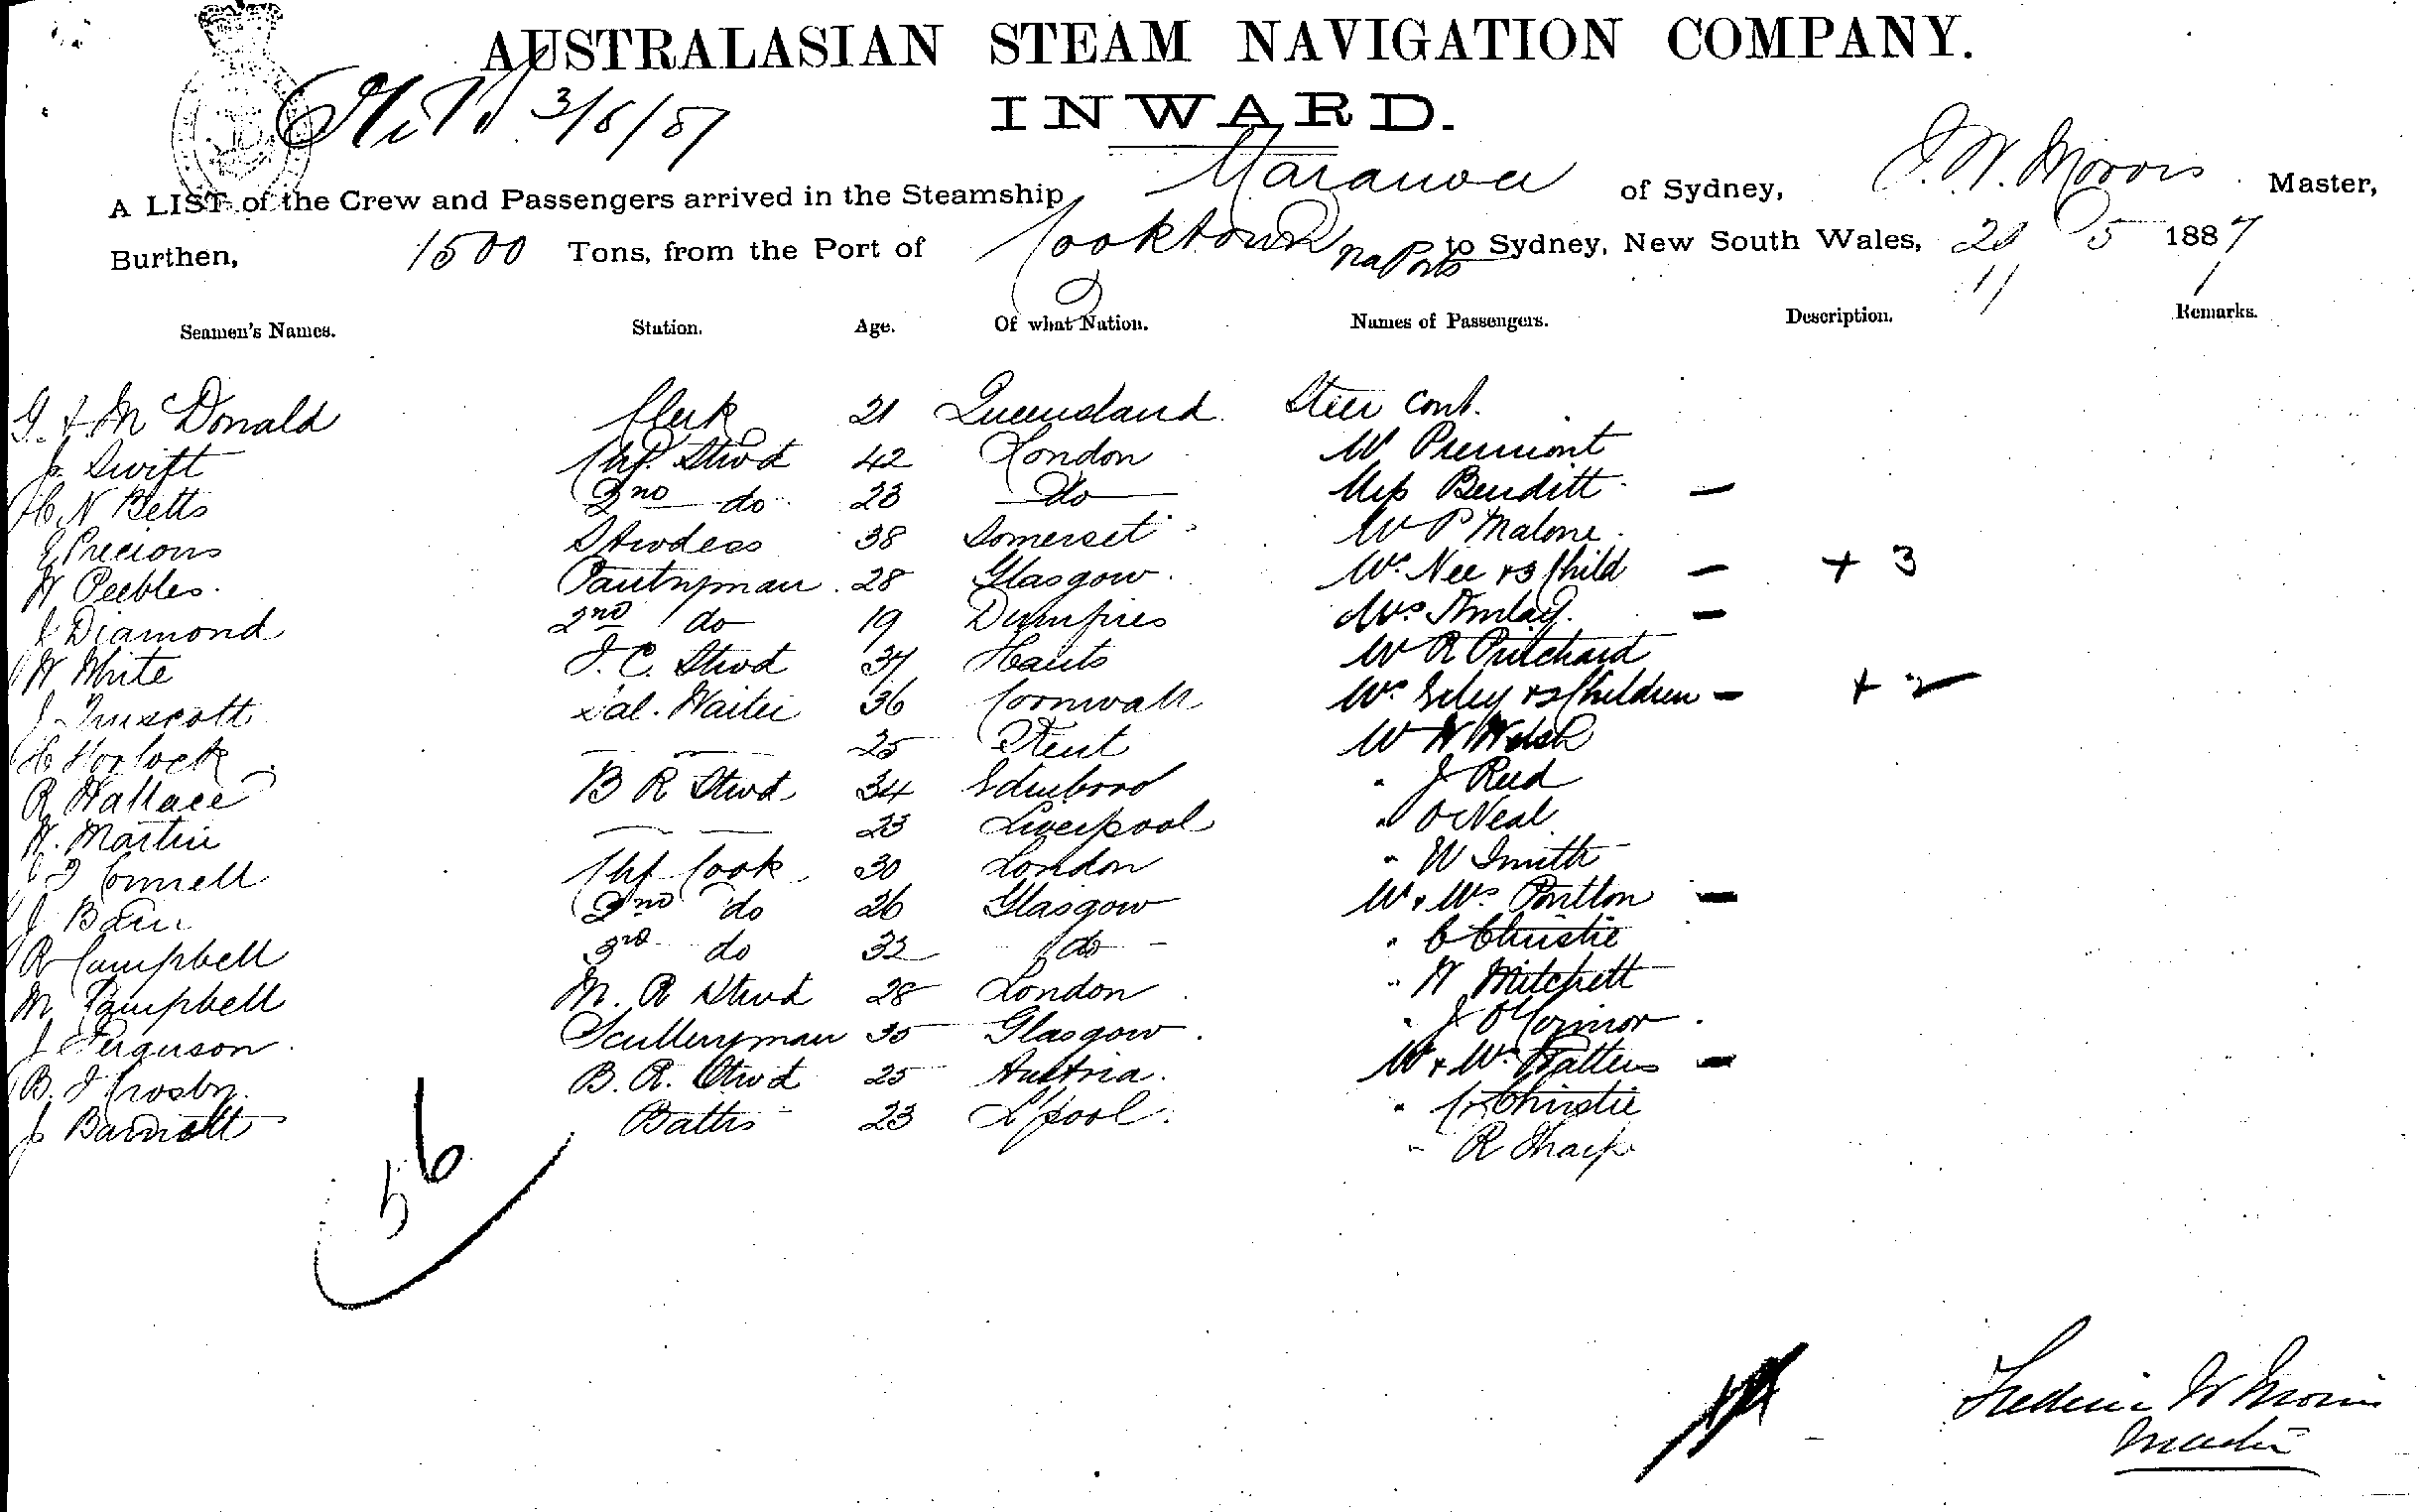 AUSTRALASIAN STEAM NAVIGATION COMPANY.
3/6/87
INWARD.
A LIST of the Crew and Passengers arrived in the Steamship Maranoa of Sydney, F. W. Morris Master,
Burthen, 1500 Tons, from the Port of Cooktown via Ports to Sydney, New South Wales, 5 1887
Seamen's Names. Station. Age. Of what Nation. Names of Passengers. Description. Remarks.
McDonald Clerk 21 Queensland Steer Cont.
J. Swift Chf. Stwd 42 London
H. N Betts 2nd do 23 do Miss Benditt —
E Precious Stwdess 38 Somerset W P Malone
W Peebles Pantryman 28 Glasgow Mrs Nee + 3 Child — + 3
J Diamond 2nd do 19 Dumfries Mrs —
W White F. C. Stwd 37 Hants W R Pritchard
J Truscott Sal. Waiter 36 Cornwall Mrs + 2 Children — + 2
H Horlock — — 25 Kent W W Welsh
R Wallace B R Stwd 34 Edinboro " J Reid
W. Martin — — 23 Liverpool " O'Neal
Connell Chf Cook 30 London " W Smith
J Barr 2nd do 26 Glasgow Mr + Mrs Poulton —
R Campbell 3rd do 32 do " C Christie
M Campbell M. R Stwd 28 London " W Mitchell
J Ferguson Sculleryman 35 Glasgow " J O'Connor
B. J Crosby B. R. Stwd 25 Austria Mr + Mrs Watters —
J Barnett 23 L'pool " Christie
" R Sharp
56
Frederic W Morris
Master